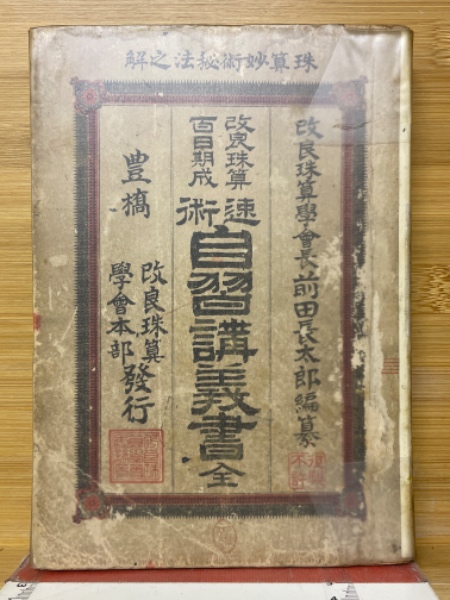 珠算妙術秘法之解
改良珠算學會長前田長太郎編纂
改良珠算
百日期成
速術
自習講義書全
豊橋
改良珠算
學會本部發行